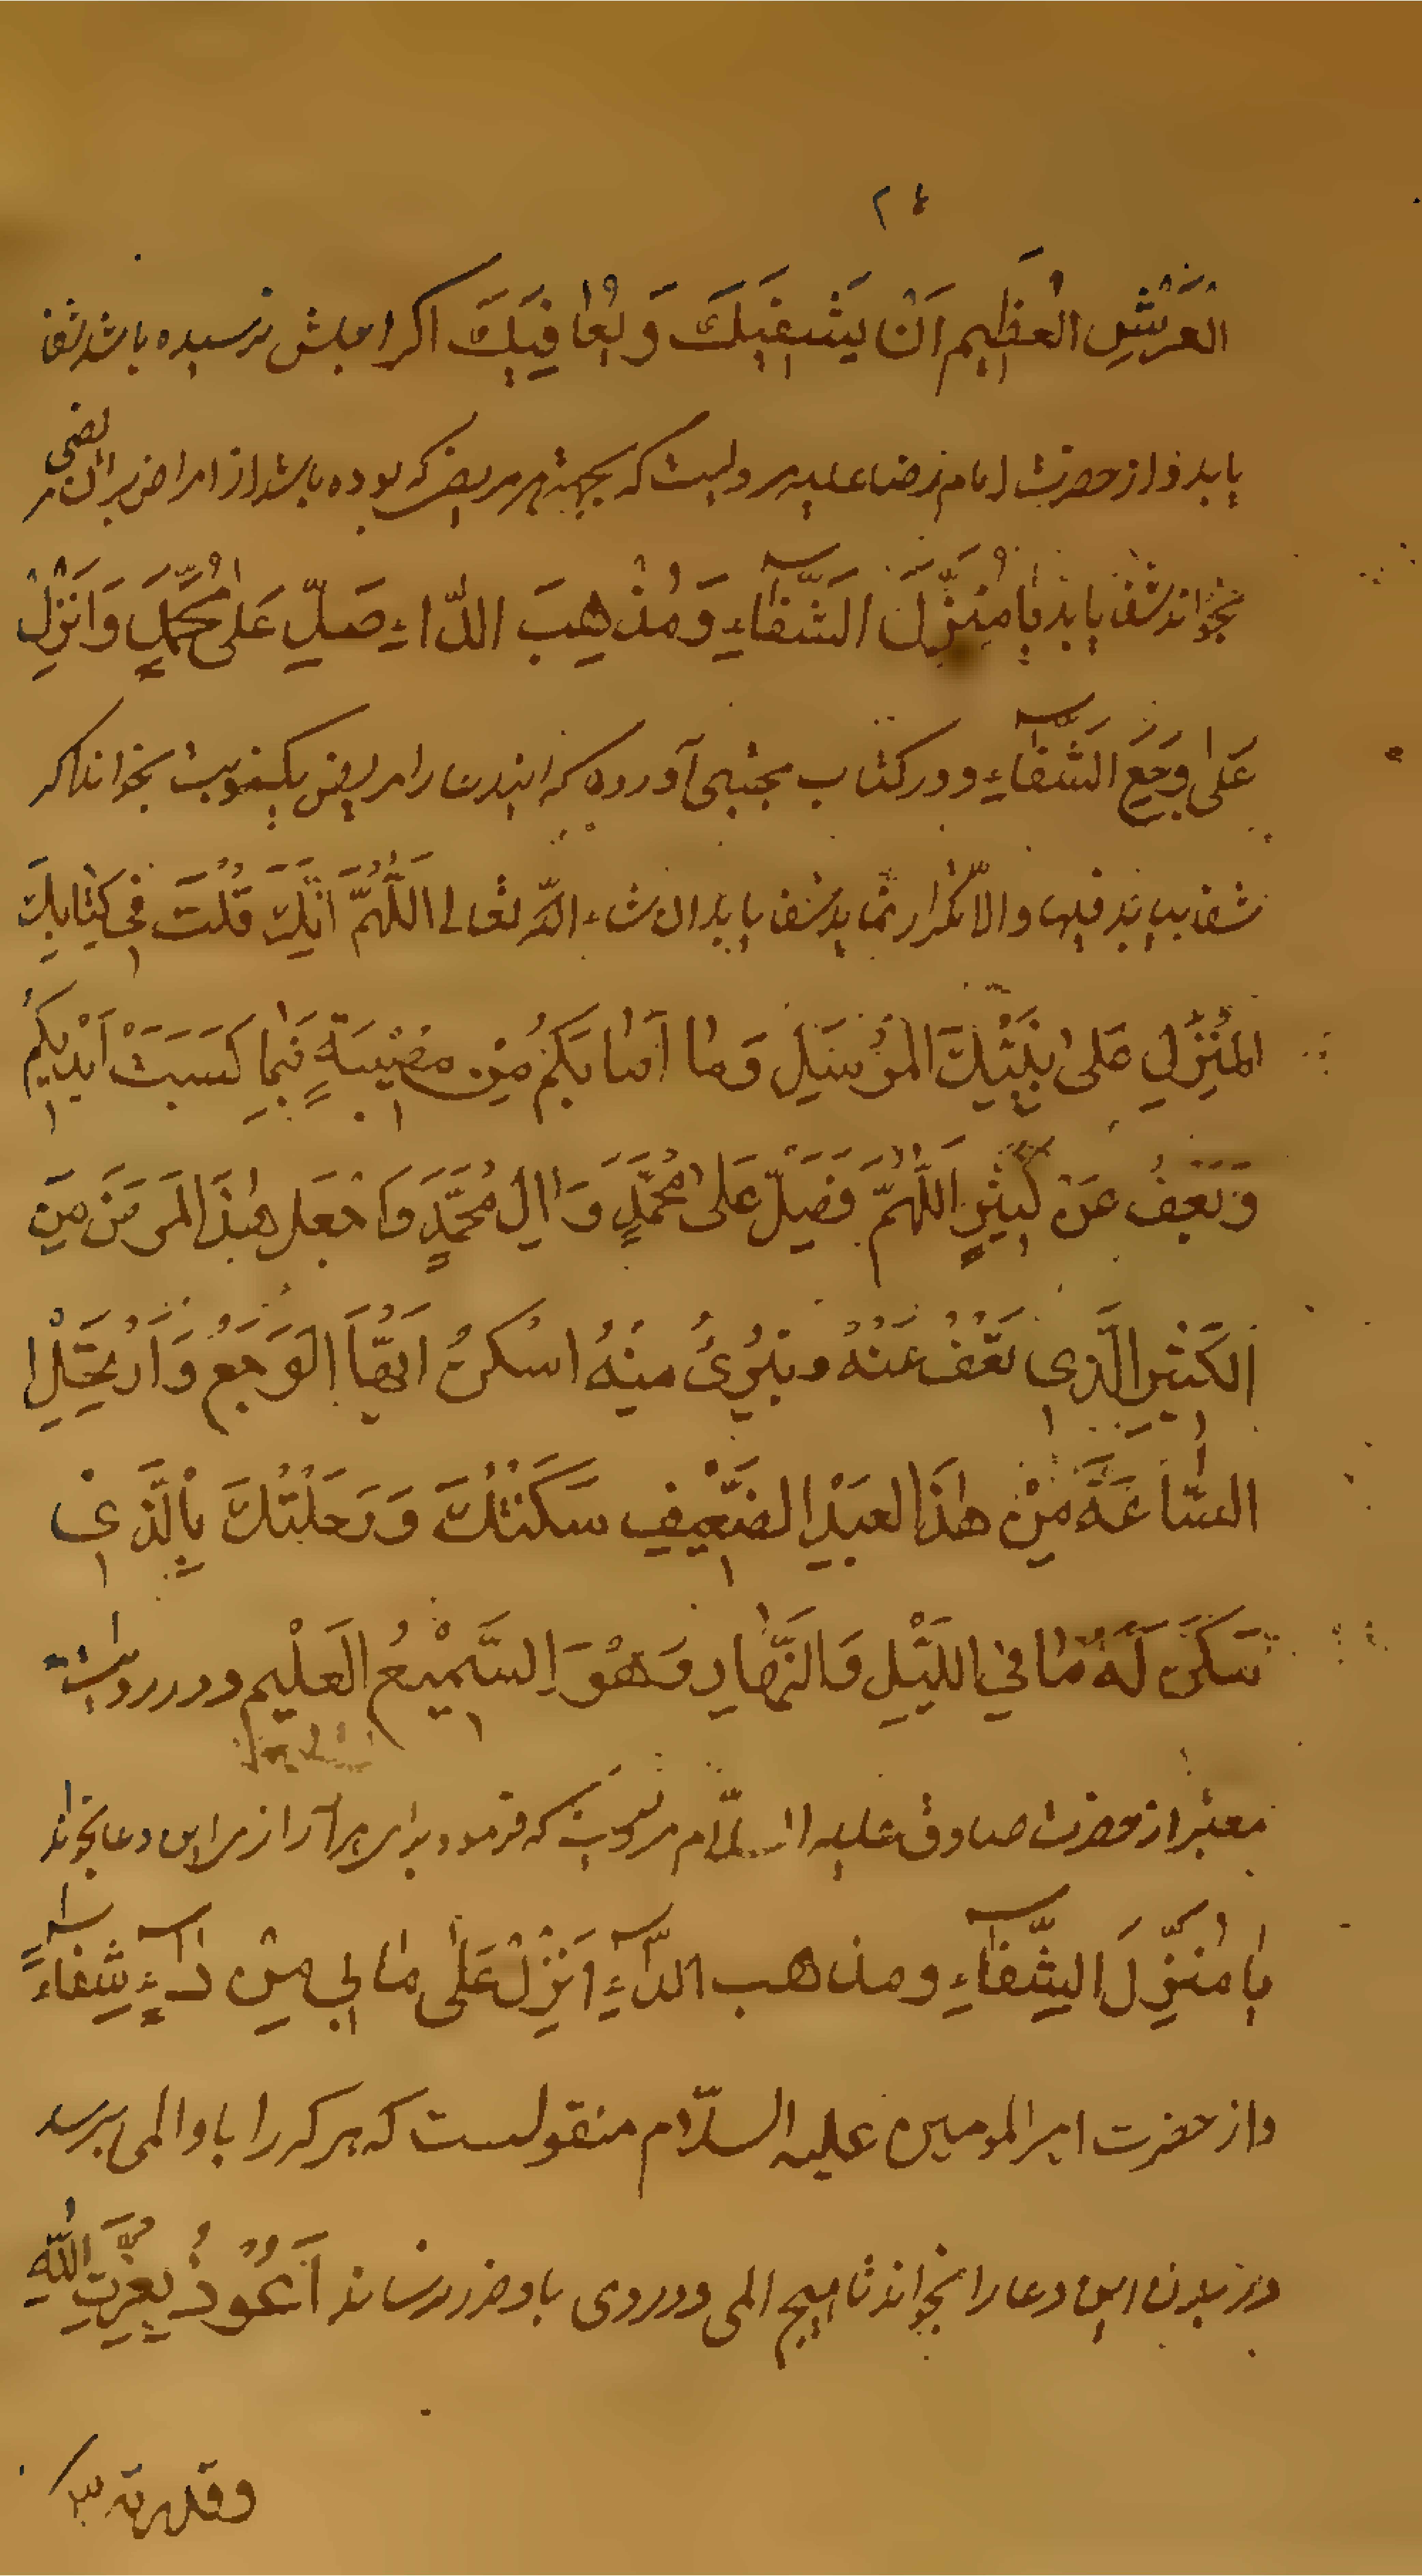 ٢٤
العَرْشِ العَظِيمِ اَنْ يَشْفِيَكَ وَيُعٰافِيَكَ اكر اجلش نرسيده باشد شفا
يابد و از حضرت امام رضا عليه مرويست كه بجهة هر مرض كه بوده باشد از امراض بر آن
بخواند شفا يابد يٰا مُنَزِّلَ الشِّفٰآءِ وَمُذْهِبَ الدّاءِ صَلِّ عَلىٰ مُحَمَّدٍ وَاَنْزِلْ
عَلىٰ وَجَعِيَ الشِّفٰآءَ و در كتاب مجتبى آورده كه ايندعا را مريض يكنوبت بخواند اكر
شفا بيابد فبها والا تكرار نمايد شفا يابد ان شاء الله تعالى اَللّٰهُمَّ اِنَّكَ قُلْتَ فى كِتٰابِكَ
المُنْزَلِ عَلىٰ نَبِيِّكَ المُرْسَلِ وَمٰا اَصٰابَكُمْ مِنْ مُصيبَةٍ فَبِمٰا كَسَبَتْ اَيْديكُمْ
وَيَعْفُ عَنْ كَثيرٍ اَللّٰهُمَّ فَصَلِّ عَلىٰ مُحَمَّدٍ وَاٰلِ مُحَمَّدٍ وَاجْعَلْ هٰذَا المَرَضَ مِنَ
الكَثيرِ الَّذى تَعْفُ عَنْهُ وتبْرِئُ مِنْهُ اسْكُنْ اَيُّهَا الوَجَعُ وَارْتَحِلِ
السّٰاعَةَ مِنْ هٰذَا العَبْدِ الضَّعيفِ سَكَّنْتُكَ وَرَحَّلْتُكَ بِالَّذى
سَكَنَ لَهُ مٰا فِي اللَيْلِ وَالنَّهٰارِ وَهُوَ السَّميعُ العَليم و در روايت
معتبر از حضرت صادق عليه السلام مرويست كه فرمود براى هر آزار اين دعا بخواند
يٰا مُنَزِّلَ الشِّفٰآءِ ومذهب الدّآءِ اَنْزِلْ عَلىٰ مٰا بى مِنْ دٰآءٍ شِفٰآءً
و از حضرت امير المومنين عليه السلام منقولست كه هر كه را باو المى برسد
در بدن اين دعا را بخواند تا هيچ المى و دردى باو ضرر نرساند اَعُوذُ بِعِزَّتِ اللّٰهِ
وقدرته